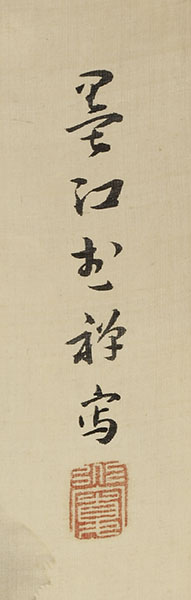 墨江武禅写